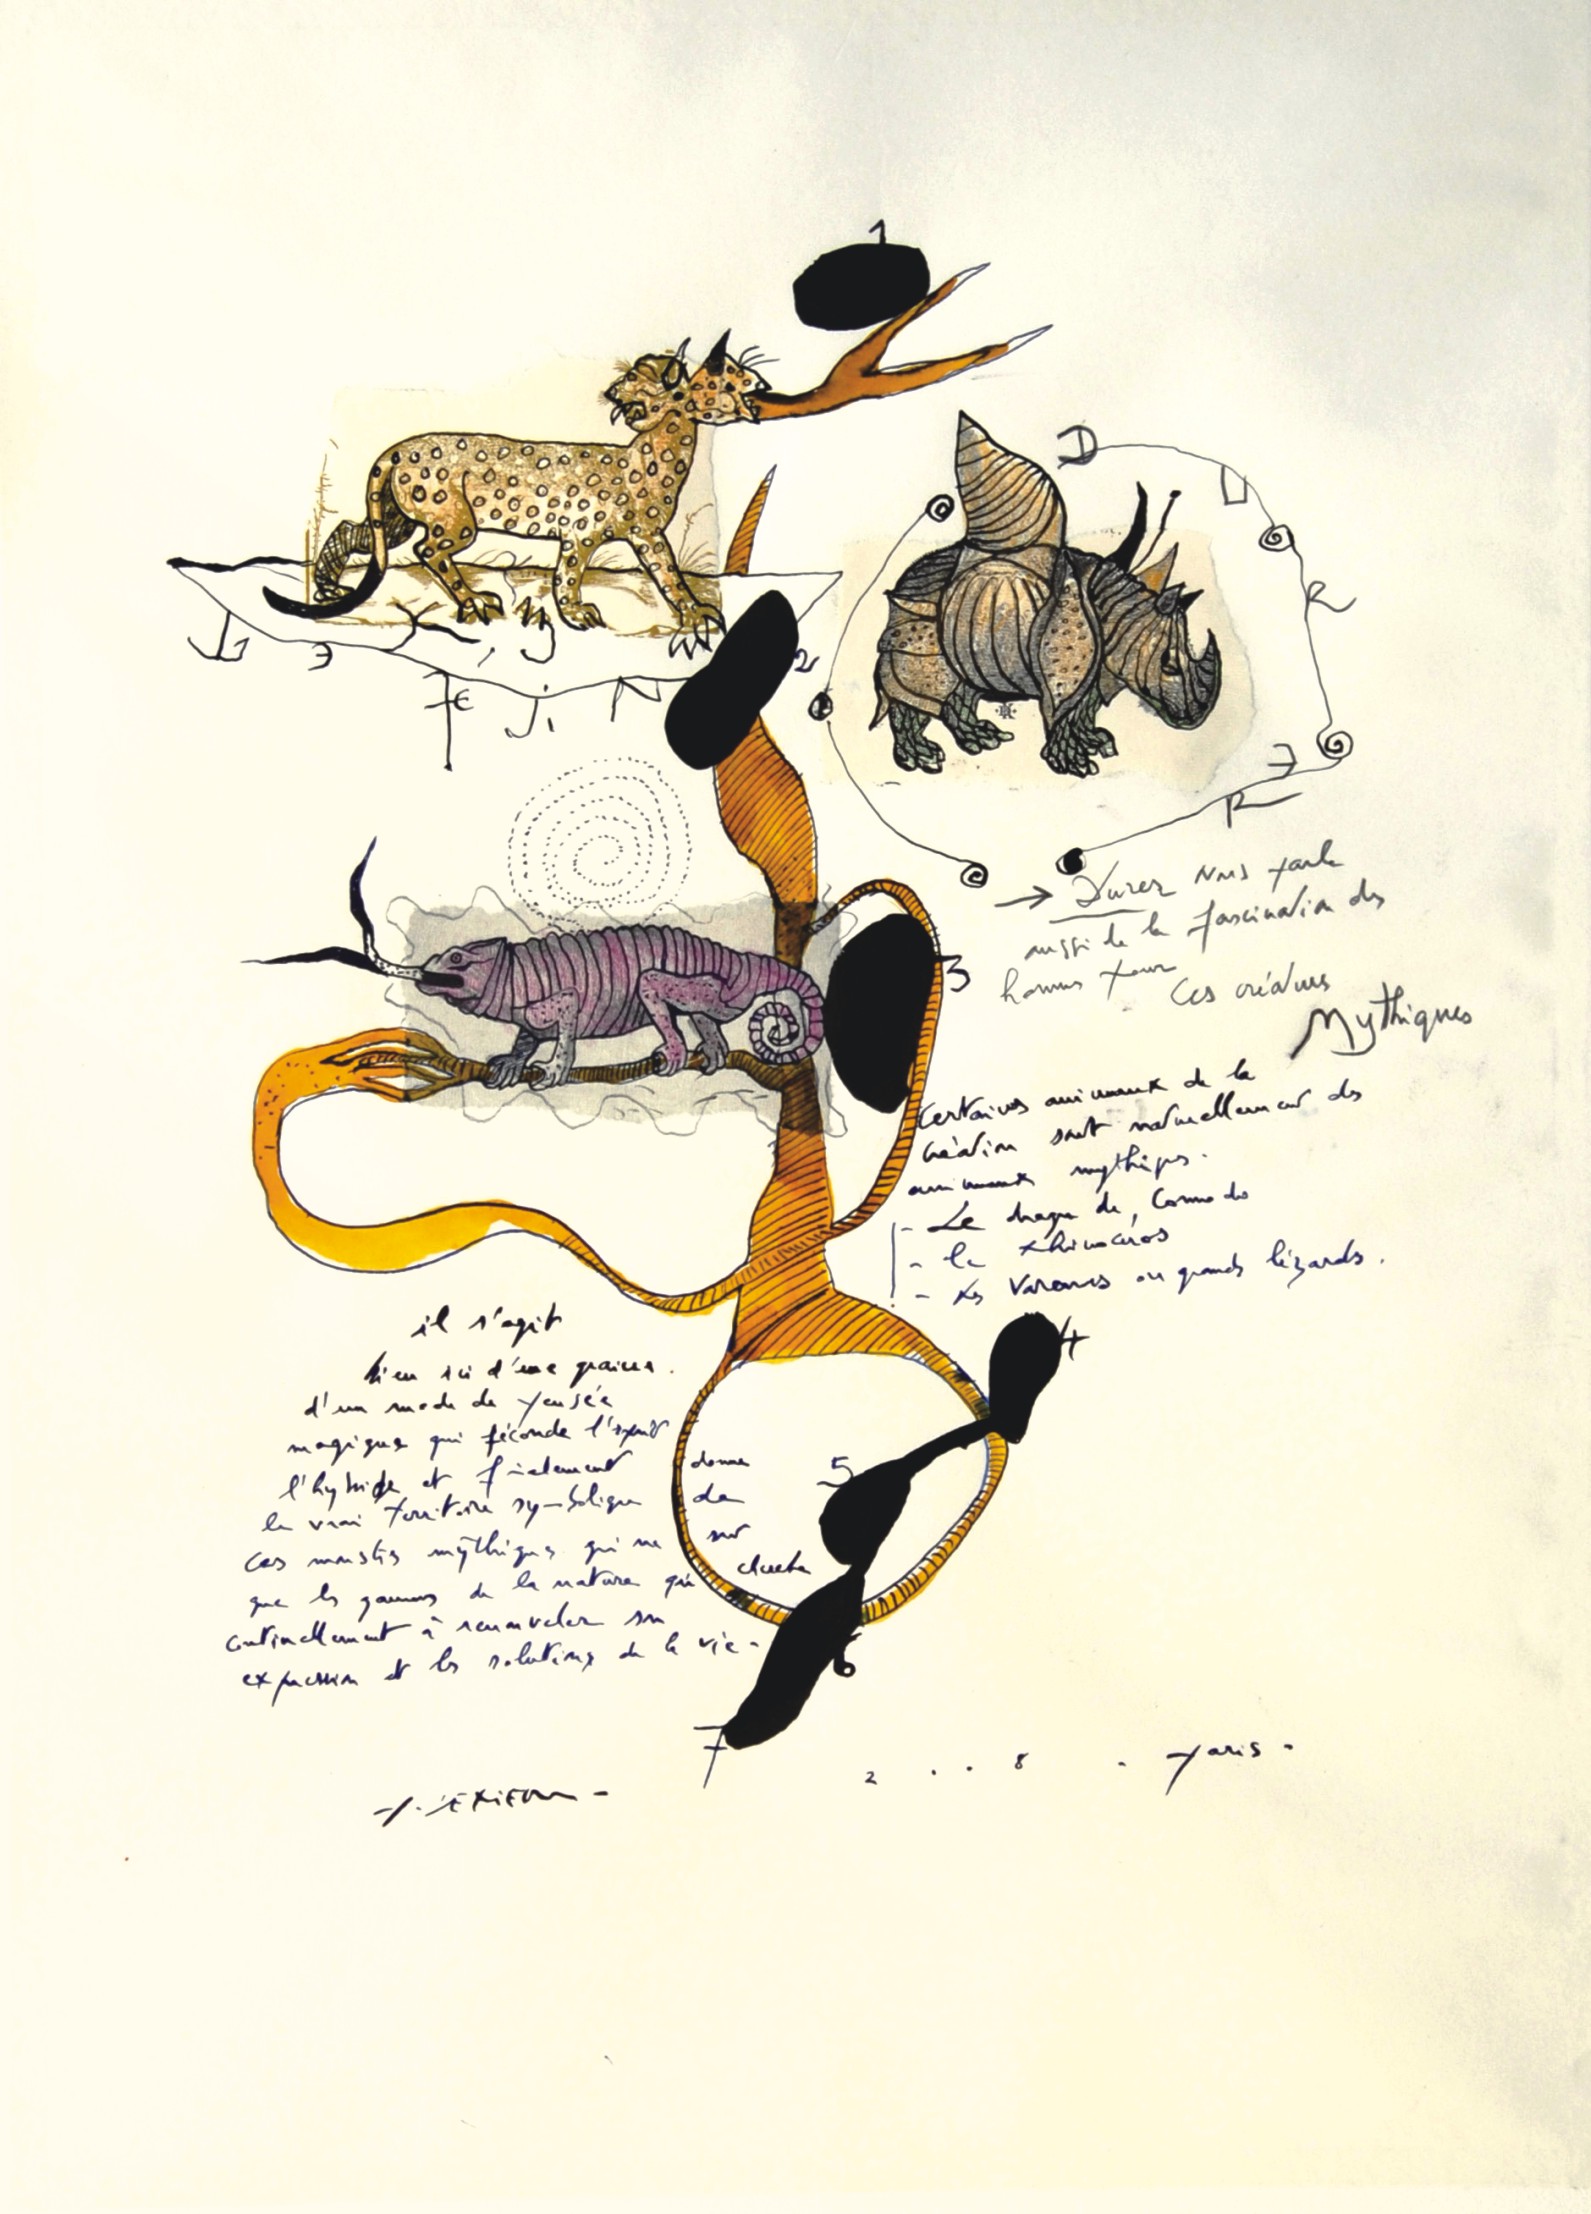 1
D
U
R
E
R
2
→ Durer nous parle
aussi de la fascination des
hommes pour
ces créatures
Mythiques
3
Certains animaux de la
Création sont naturellement des
animaux mythiques.
- Le dragon de Comodo
- le rhinocéros
- les Varans ou grands lézards.
4
il s'agit
bien ici d'une
d'un mode de pensée
magique qui féconde l'esprit
l'hybride et finalement donne
le vrai territoire symbolique de
ces monstres mythiques qui ne sur
que les gammes de la nature qui cherche
continuellement à renouveler son
expression et les solutions de la vie -
5
6
7
2 . . 8 - Paris -